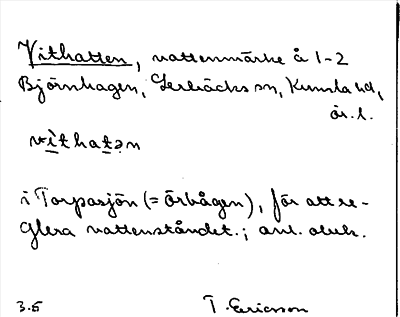 Vithatten, vattenmärke å 1-2
Björnhagen, Lerbäcks sn, Kumla hd,
ör. l.
vìthatən
i Torpasjön (= Örbågen), för att re-
glera vattenståndet.; anl. obek.
3.5 T. Ericsson